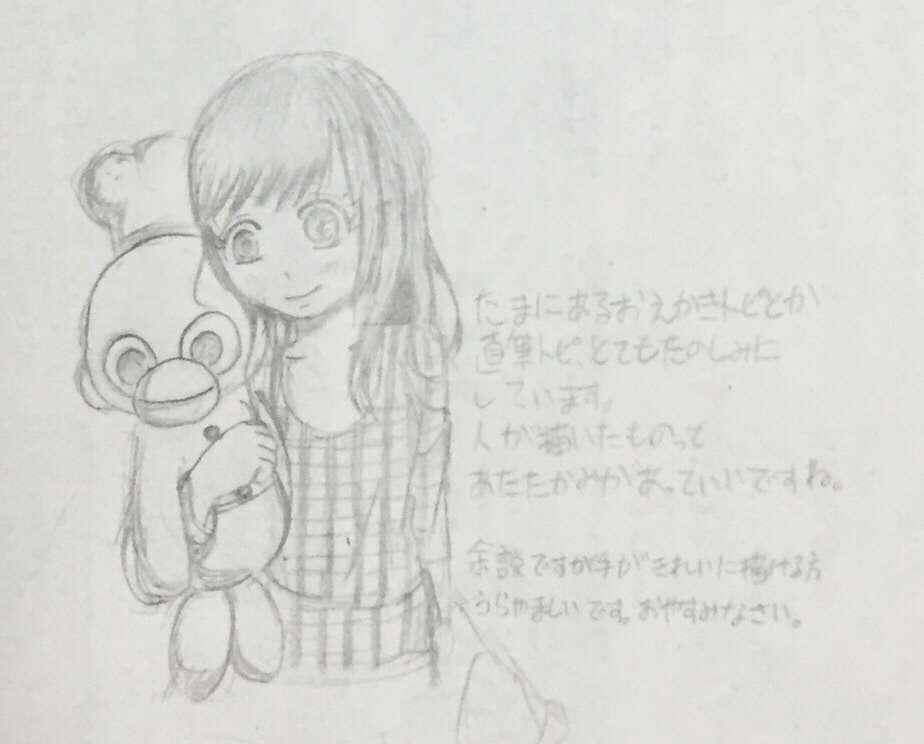 たまにあるおえかきトピとか
直筆トピ、とてもたのしみに
しています。
人が描いたものって
あたたかみがあっていいですね。
余談ですが手がきれいに描ける方
うらやましいです。おやすみなさい。